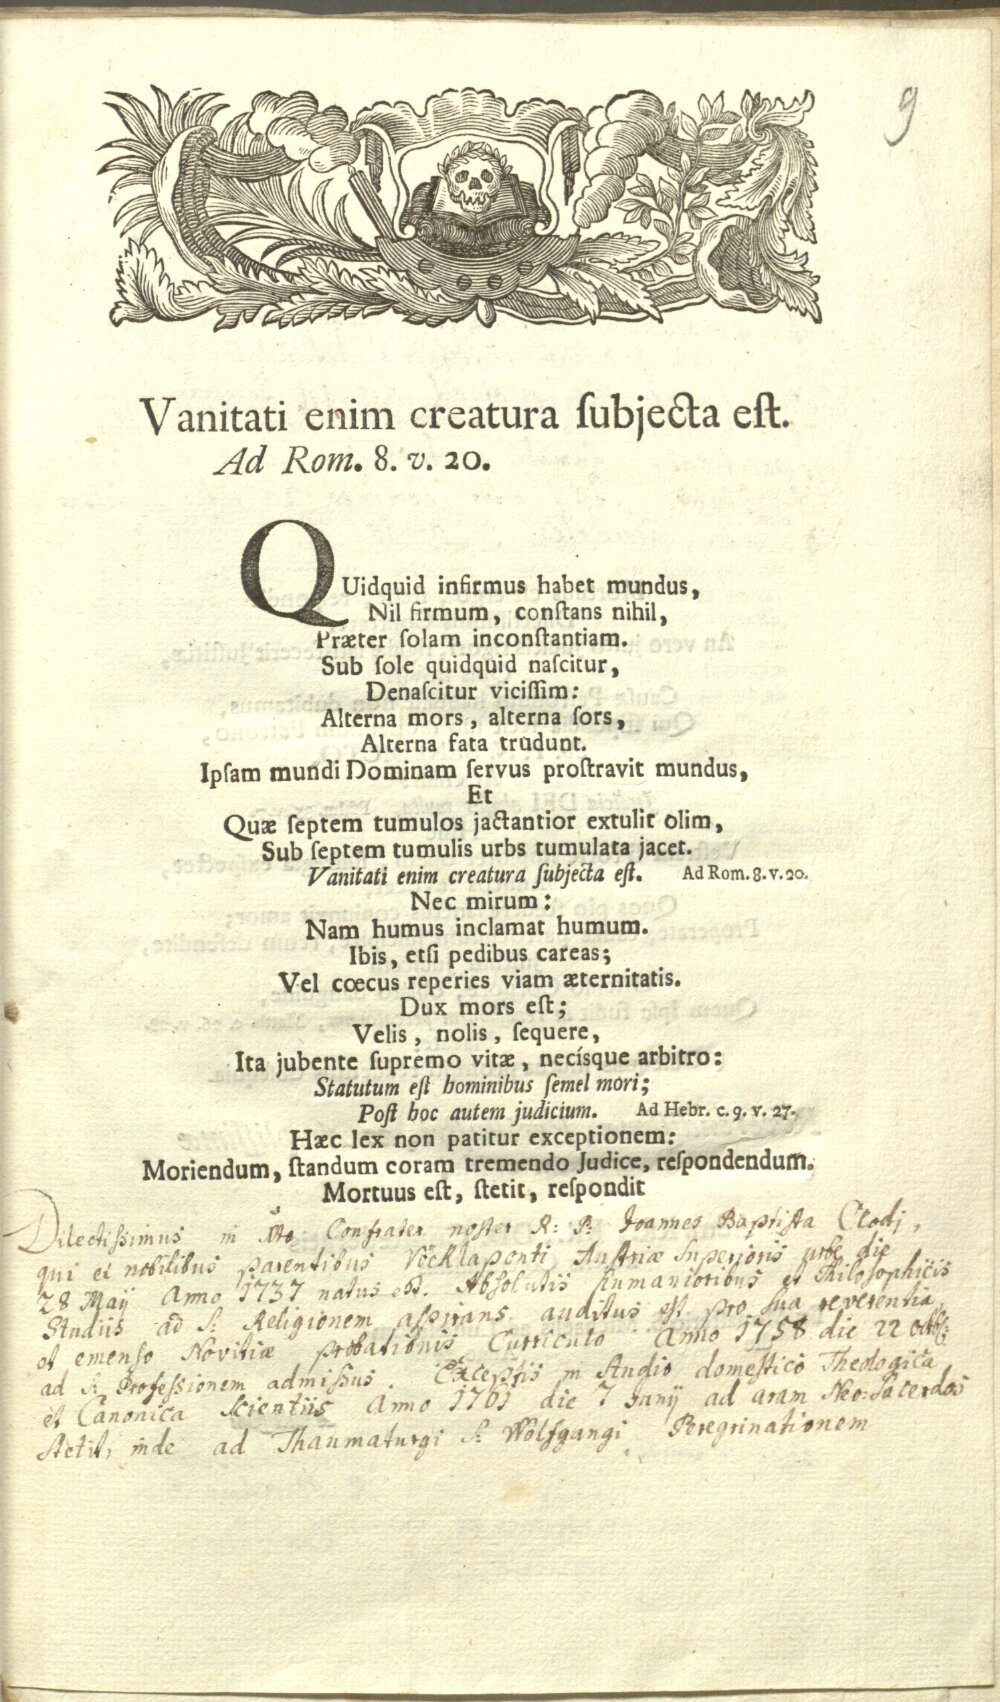 9
Vanitati enim creatura ſubjecta eſt.
Ad Rom. 8. v. 20.
QUidquid infirmus habet mundus,
Nil firmum, conſtans nihil,
Præter ſolam inconſtantiam.
Sub ſole quidquid naſcitur,
Denaſcitur viciſſim:
Alterna mors, alterna ſors,
Alterna fata trudunt.
Ipſam mundi Dominam ſervus proſtravit mundus,
Et
Quæ ſeptem tumulos jactantior extulit olim,
Sub ſeptem tumulis urbs tumulata jacet.
Vanitati enim creatura ſubjecta eſt. Ad Rom. 8. v. 20.
Nec mirum:
Nam humus inclamat humum.
Ibis, etſi pedibus careas;
Vel cœcus reperies viam æternitatis.
Dux mors eſt;
Velis, nolis, ſequere,
Ita jubente ſupremo vitæ, necisque arbitro:
Statutum eſt hominibus ſemel mori;
Poſt hoc autem judicium. Ad Hebr. c. 9. v. 27.
Hæc lex non patitur exceptionem:
Moriendum, ſtandum coram tremendo Judice, reſpondendum.
Mortuus eſt, ſtetit, reſpondit
Dilectiſsimus in Confrater noſter R: P: Joannes Baptiſta Clodj,
qui ex nobilibus parentibus Vöcklaponti Auſtriæ Superioris urbe die
28 Maij Anno 1737 natus eſt. Absolutis humanioribus et Philoſophicis
Studiis ad S: Religionem aſpirans auditus eſt pro ſua reverentia,
et emenſo Novitiæ probationis Curriculo Anno 1758 die 22
ad S: Profeſsionem admiſsus. Exceptis in domeſtico Theologica
et Canonica Scientiis Anno 1761 die 7 Junij ad aram Neo-Sacerdos
ſtetit, inde ad Thaumaturgi S: Wolfgangi Peregrinationem